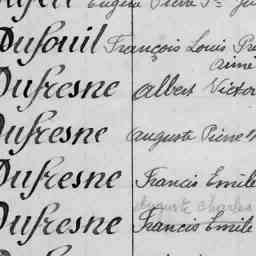 Eugène Pierre
Dufouil François Louis
aimé
Dufresne Albert Victor
Dufresne Auguste Pierre
Dufresne Francis Emile
Auguste Charles
Dufresne Francis Emile